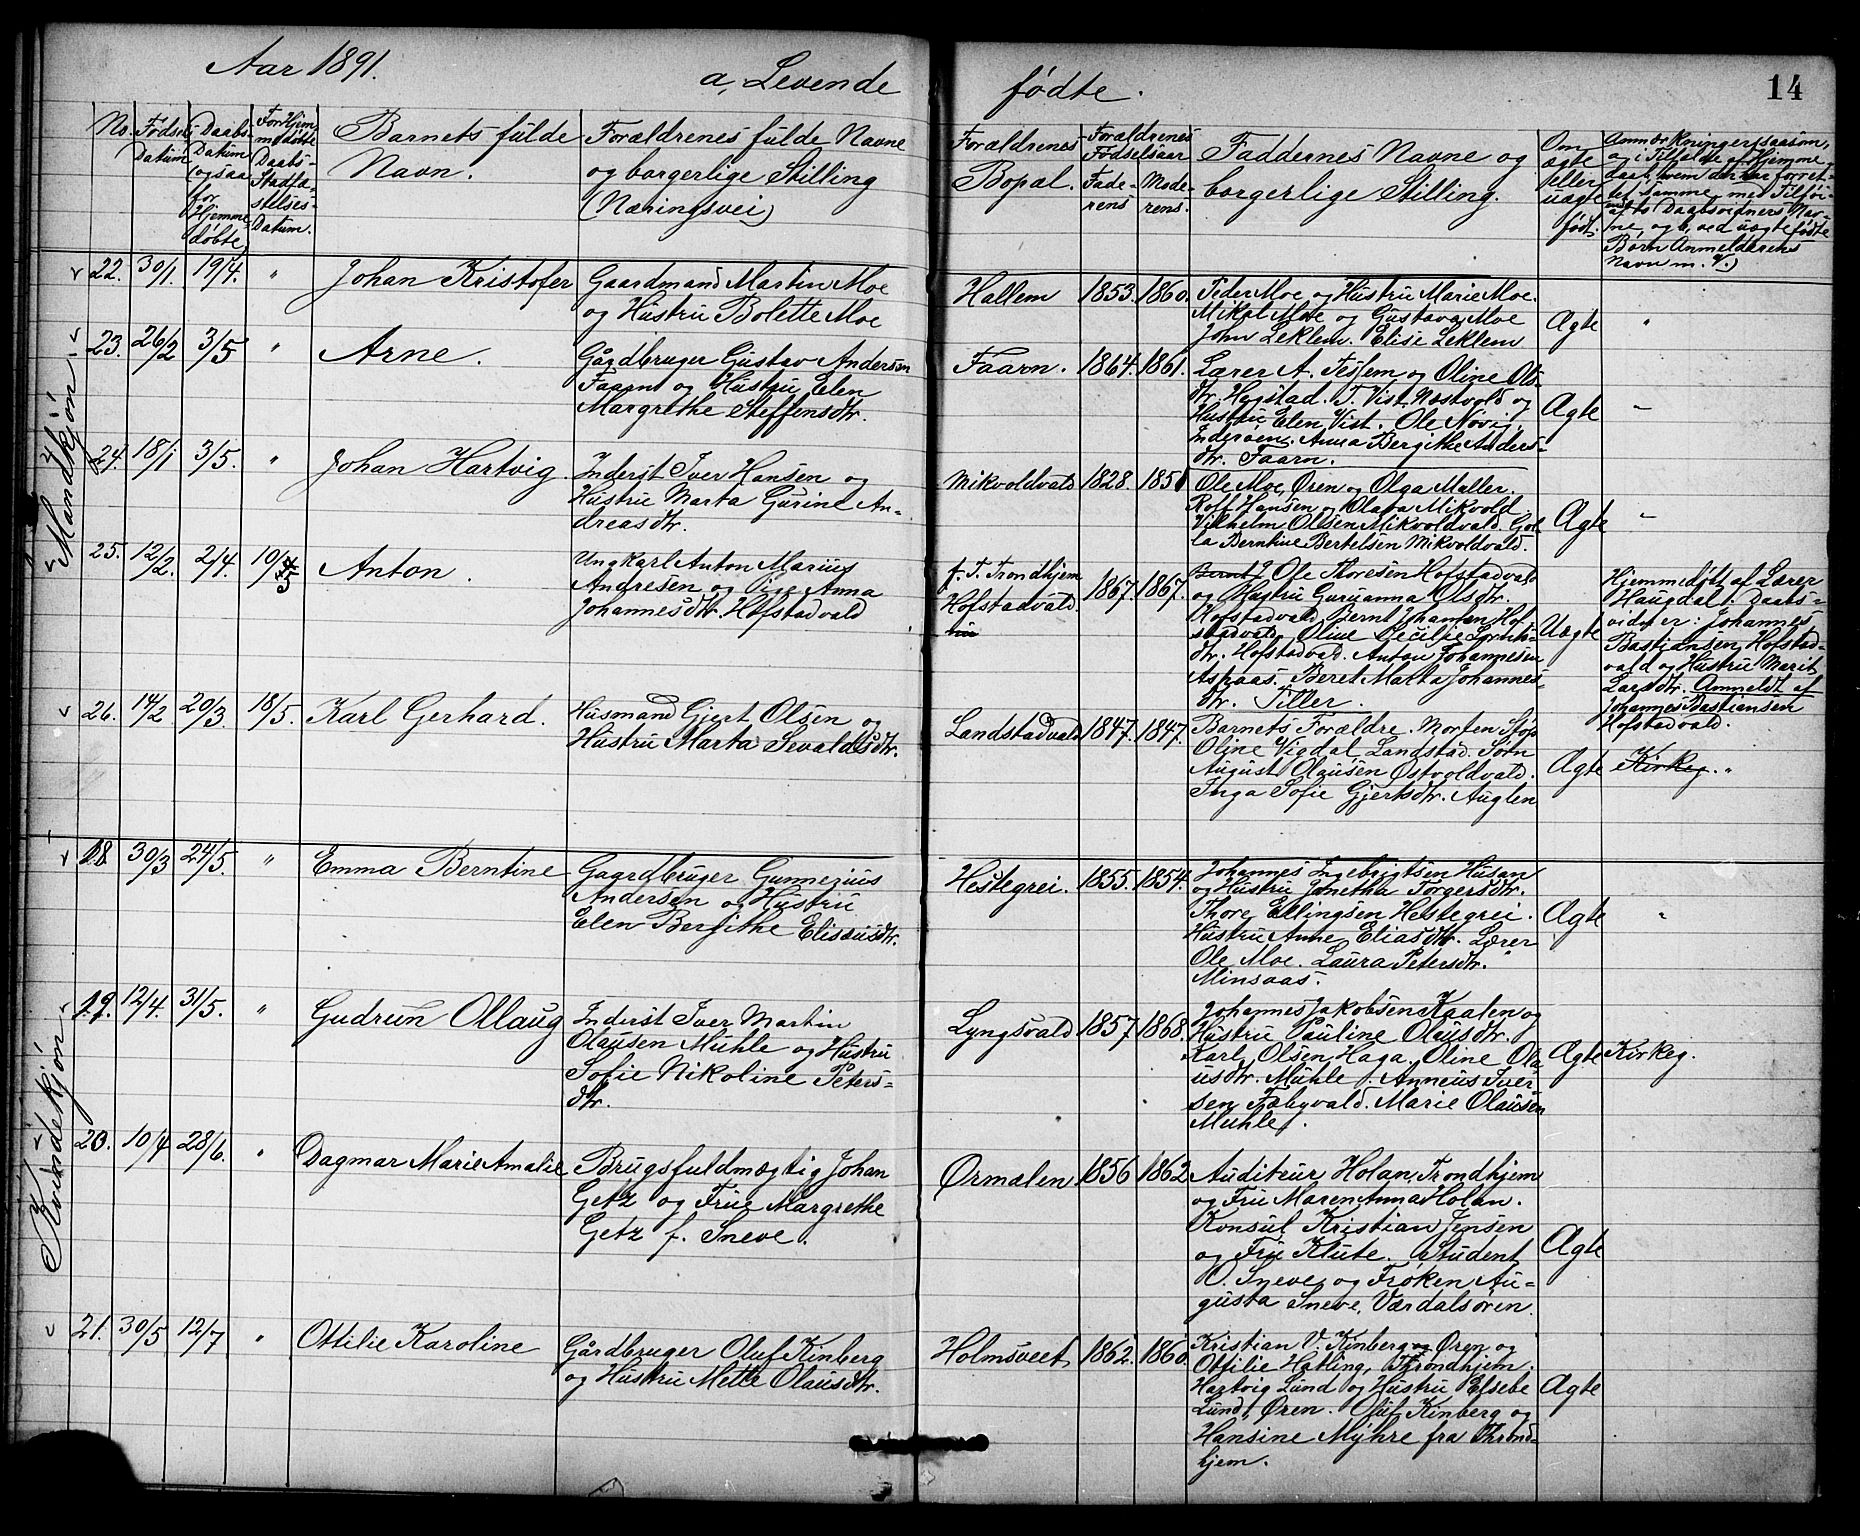 Aar 1891.
a, Levende
fødte.
14
No.
Fødsels Datum
Daabs-
Datum
(ogsaa
for
Hjemme
døbte
For Hjem
medøbte
Daabs-
Stadfæ-
stelses-
Datum.
Barnets fulde
Navn.
Forældrenes fulde Navne
og borgerlige Stilling
(Næringsvei)
Forældrenes
Bopæl.
Forældrenes
Fødselsaar
Fade-
rens
Mode-
rens.
Faddernes Navne og
borgerlige Stilling.
Om
ægte
eller
uægte
født.
Anmærkninger (saasom,
a, i Tilfælde af Hjemme
daab, hvem der har forret-
tet samme, med Tilføi-
else af to Daabsvidners Nav-
ne, og b, ved uægte fødte
Børn Anmelderens
Navn m. V.)
Mandkjøn.
22. 30/1 19/4. " Johan Kristofer
Gaardmand Martin Moe
og Hustru Bolette Moe
Hallem 1853. 1860.
Peder Moe og Hustru Marie Moe.
Mikal Moe og Gustava Moe
John Leklem. Elise Leklem
Ægte "
23. 26/2 3/5 " Arne.
Gårdbruger Gustav Andersen
Faarn og Hustru Elen
Margrethe Steffensdtr.
Faarn. 1864. 1861.
Lærer A. Teslem og Oline Ols-
dtr. Hegstad. T. Vist Næstvold og
Hustru Elen Vist. Ole Nøvig,
Inderøen, Anna Bergithe Anders-
dtr. Faarn.
Ægte –
24. 18/1 3/5. " Johan Hartvig
Inderst Iver Hansen og
Hustru Marta Gurine An-
dreasdtr.
Mikvoldvald 1828. 1851
Ole Moe, Øren og Olga Maller.
Rolf Hansen og Olava Mikvold.
Vilhelm Olsen Mikvoldvald. Gol-
la Berntine Bertelsen Mikvoldvald.
Ægte –
25. 12/2. 2/4. 10/5 Anton.
Ungkarl Anton Marius
Andresen og Pige Anna
Johannesdtr. Hofstadvald
f. T. Trondhjem
Hofstadvald. 1867. 1867.
Ole Thoresen Hofstadvald
og Hustru Guruanna Olsdtr.
Hofstadvald, Bernt Johansen Hof-
stadvald, Oline Cecilie Lorents-
dtr. Hofstadvald. Anton Johannesen
Aspaas. Beret Marta Johannes-
dtr. Tiller.
Uægte
Hjemmedøbt af Lærer
Haugdal. Daabs-
vidner: Johannes
Bastiansen, Hofstad-
vald og Hustru Marit
Larsdtr. Anmeldt af
Johannes Bastiansen
Hofstadvald.
26. 14/2 20/3. 18/5. Karl Gerhard.
Husmand Gjert Olsen og
Hustru Marta Sevaldsdtr.
Landstadvald 1847. 1847.
Barnets Forældre. Morten Stop
Oline Vigdal, Landstad. Sørn
August Olausen Østvoldvald.
Inga Sofie Gjertsdtr. Auglen
Ægte Kirkeg. "
Kvindekjøn.
18. 30/3 24/5. " Emma Berntine
Gaardbruger Gunnerius
Andersen og Hustru
Elen Bergithe Elisæusdtr.
Hestegrei. 1855. 1854.
Johannes Ingebrigtsen Husan
og Hustru Janetha Torgersdtr.
Thore Ellingsen Hestegrei.
Hustru Anne Eliasdtr. Lærer
Ole Moe. Laura Petersdtr.
Minsaas.
Ægte "
19. 12/4. 31/5. " Gudrun Ollaug
Inderst Iver Martin
Olausen Muhle og Hustru
Sofie Nikoline Peters-
dtr.
Lyngsvald 1857. 1868.
Johannes Jakobsen Kaalen og
Hustru Pauline Olausdtr.
Karl Olsen Haga. Oline Ola-
usdtr. Muhle. Anneus Iver-
sen Fæbyvald. Marie Olausen
Muhle.
Ægte Kirkeg.
20. 10/4 28/6. " Dagmar Marie Amalie
Brugsfuldmægtig Johan
Getz og Frue Margrethe
Getz f. Sneve.
Ørmælen. 1856 1862
Auditeur Holan, Trondhjem
og Fru Maren Anna Holan.
Konsul Kristian Jensen
og Fru Klute. Student
O. Sneve og Frøken Au-
gusta Sneve, Værdalsøren.
Ægte
21. 30/5 12/7 " Ottilie Karoline
Gårdbruger Oluf Kinberg
og Hustru Mette Olausdtr.
Holmsveet 1862. 1860.
Kristian V. Kinberg Øren og
Ottilie Hatling, Throndhjem.
Hartvig Lund og Hustru Elsebe
Lund, Øren. Oluf Kinberg og
Hansine Myhre fra Thrond-
hjem.
Ægte